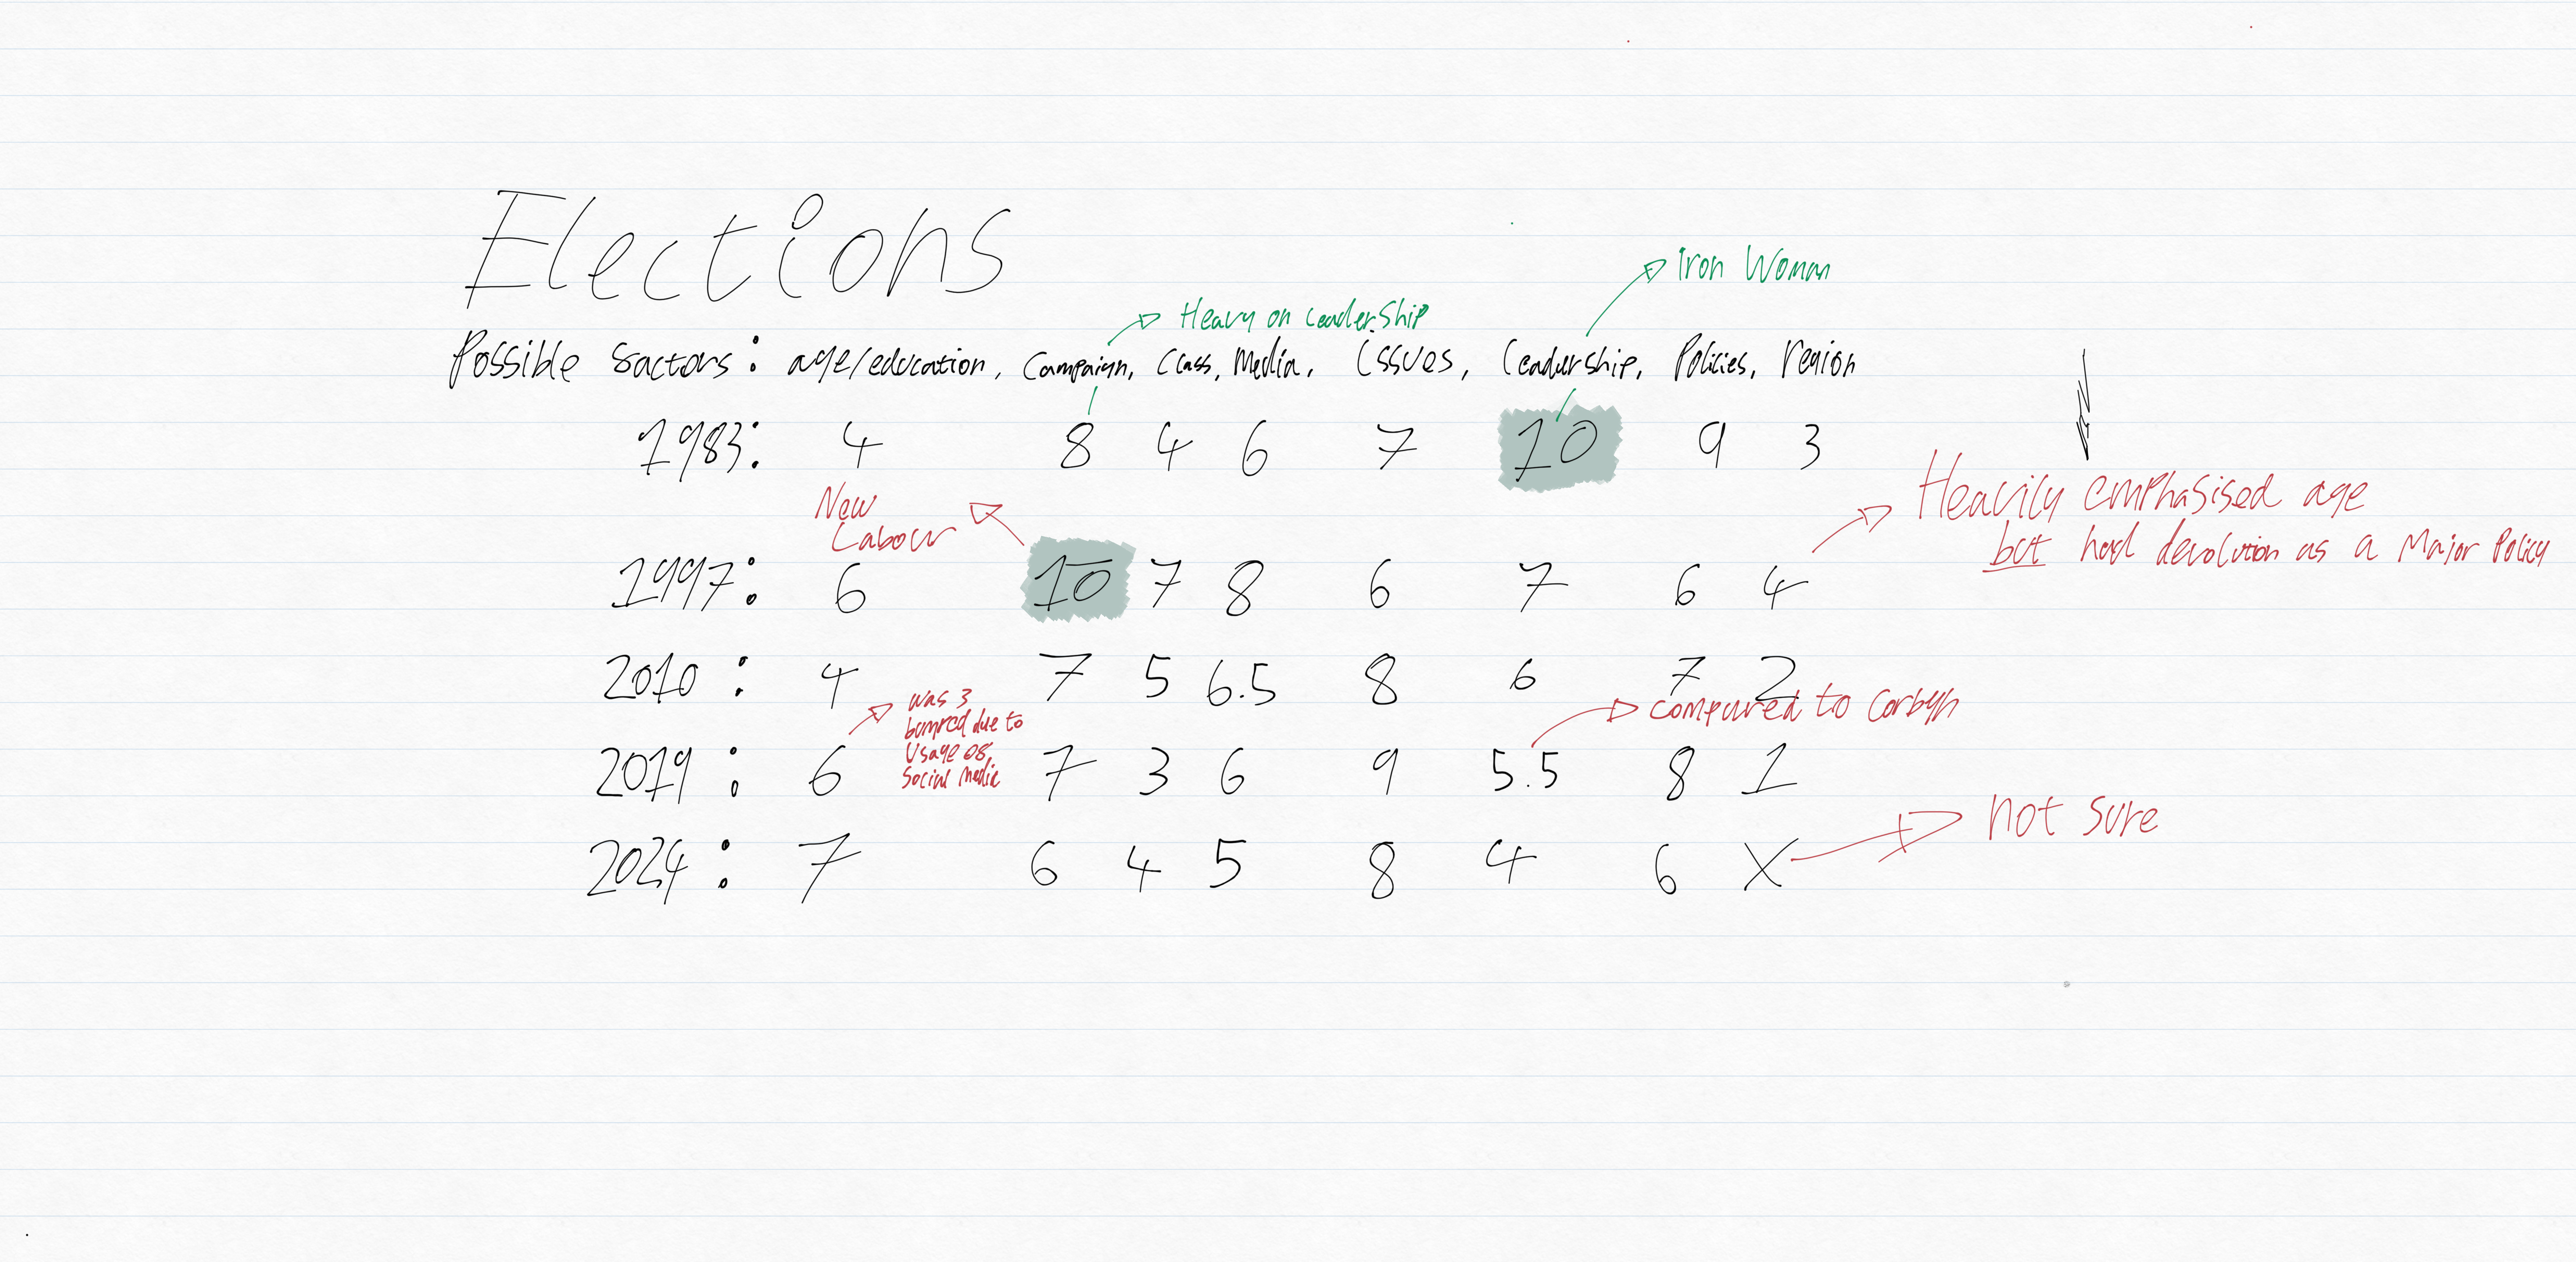 Elections
Iron Woman
Heavy on Leadership
Possible factors: age/education, Campaign, Class, Media, Issues, Leadership, Policies, region
1983: 4 8 4 6 7 10 9 3
New
Labour
Heavily emphasised age
but had devolution as a Major Policy
1997: 6 10 7 8 6 7 6 4
2010: 4 7 5 6.5 8 6 7 2
was 3
bumped due to
Usage of
Social Media
compared to Corbyn
2019: 6 7 3 6 9 5.5 8 1
not sure
2024: 7 6 4 5 8 4 6 X